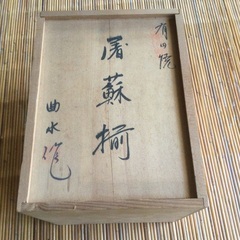 有田焼
屠蘇揃
曲水作